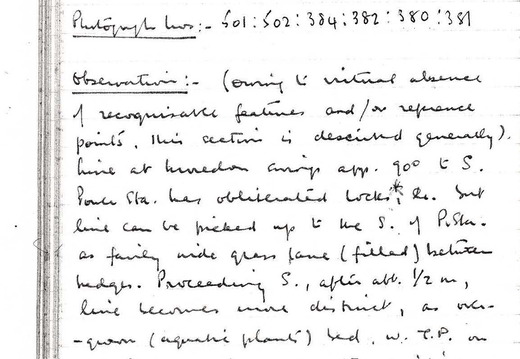 Photograph Nos:- 501: 502: 384: 382: 380: 381
Observation:- (owing to virtual absence
of recognisable features and/or reference
points, this section is described generally).
Line at Moredon swings app. 90° to S.
Power Sta. has obliterated locks*, &c. but
line can be picked up to the S. of P.Sta.
as fairly wide grass lane (filled) between
hedges. Proceeding S., after abt. 1/2 m,
line becomes more distinct, as over-
-grown (aquatic plants) bed, w. T.P. on